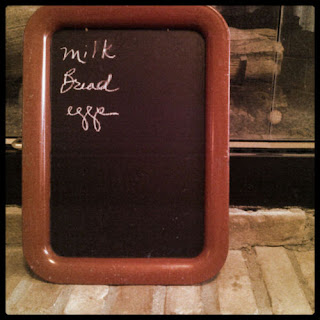 milk
Bread
eggs